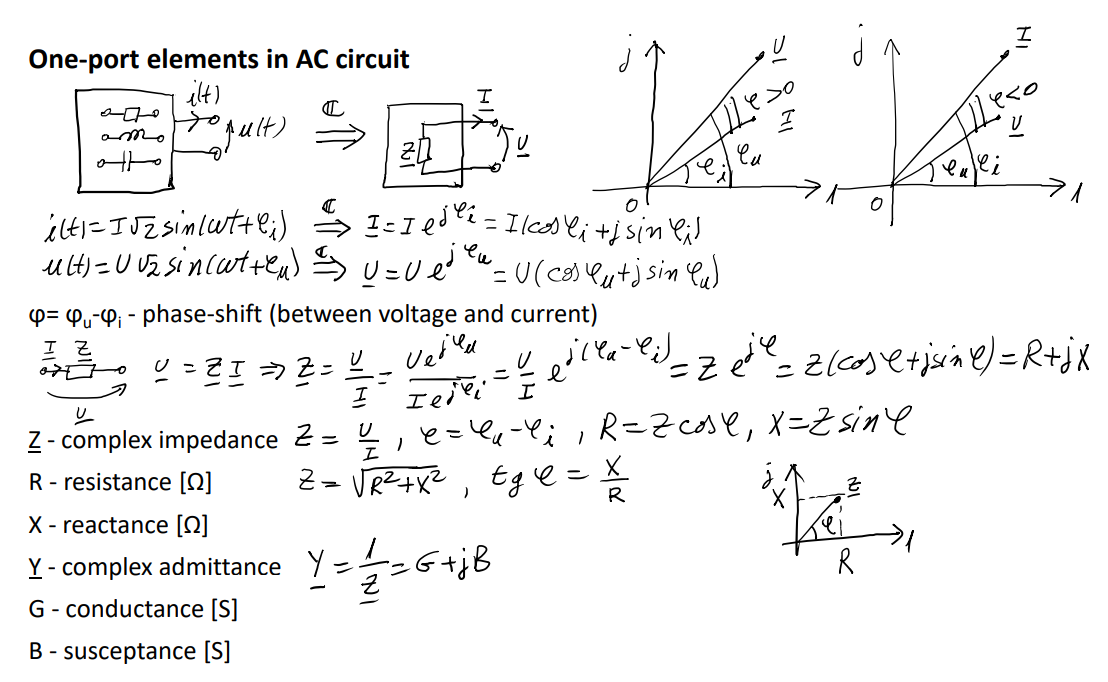 One-port elements in AC circuit
i(t) u(t) ℂ ⇒ I Z U
j U φ>0 I φᵢ φᵤ 0 1
j I φ<0 U φᵤ φᵢ 0 1
i(t)=I√2 sin(ωt+φᵢ) ℂ ⇒ I̲=I e^{jφᵢ}=I(cosφᵢ+j sinφᵢ)
u(t)=U√2 sin(ωt+φᵤ) ℂ ⇒ U̲=U e^{jφᵤ}=U(cosφᵤ+j sinφᵤ)
φ= φᵤ-φᵢ - phase-shift (between voltage and current)
I̲ Z̲ U̲ U̲=Z̲ I̲ ⇒ Z̲=U̲/I̲=Ue^{jφᵤ}/Ie^{jφᵢ}=U/I e^{j(φᵤ-φᵢ)}=Z e^{jφ}=Z(cosφ+jsinφ)=R+jX
Z̲ - complex impedance Z=U/I, φ=φᵤ-φᵢ, R=Zcosφ, X=Zsinφ
R - resistance [Ω] Z=√(R²+X²), tgφ=X/R
j X Z φ R 1
X - reactance [Ω]
Y̲ - complex admittance Y̲=1/Z̲=G+jB
G - conductance [S]
B - susceptance [S]